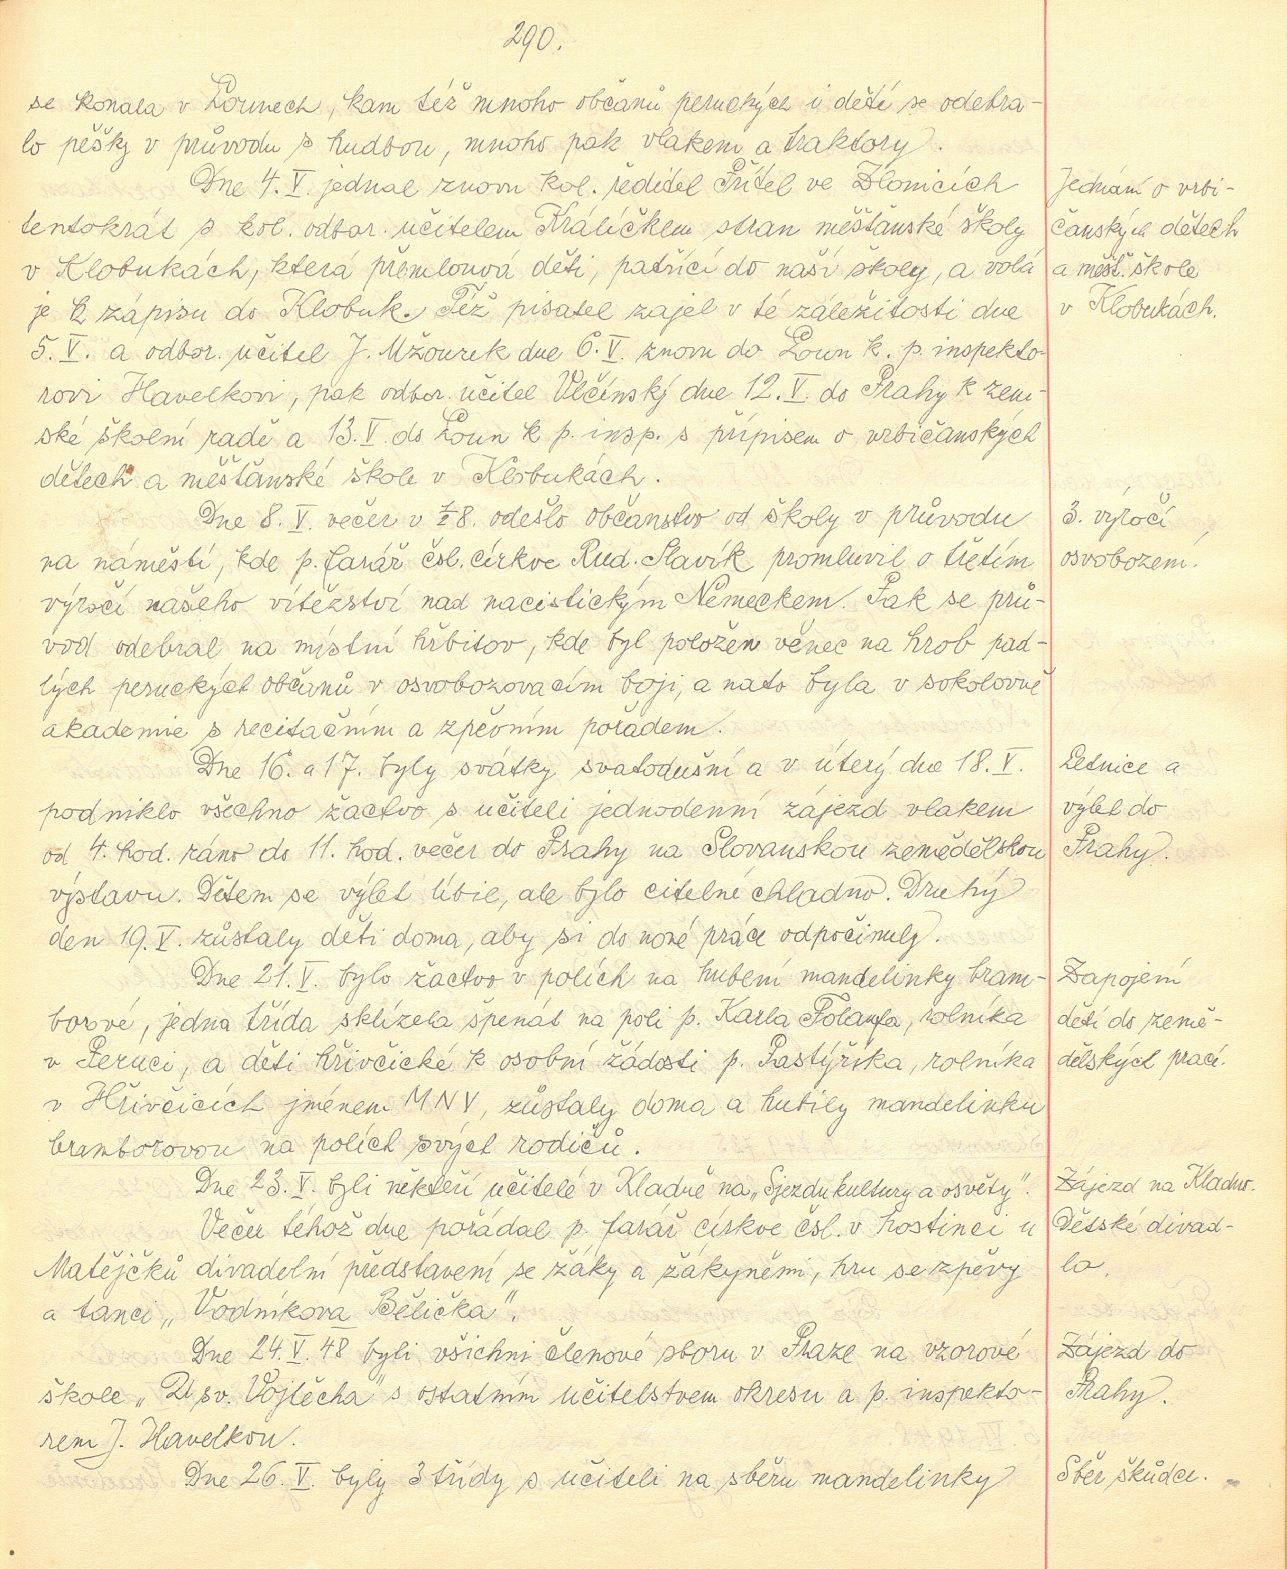 290.
se konala v Lounech, kam též mnoho občanů peruckých i dětí se odebra-
lo pěšky v průvodu s hudbou, mnoho pak vlakem a traktory.
Dne 4. V. jednal znovu kol. ředitel Přítel ve Zlonicích
tentokrát s kol. odbor. učitelem Králíčkem stran měšťanské školy
v Klobukách, která přemlouvá děti, patřící do naší školy, a volá
je k zápisu do Klobuk. Též pisatel zajel v té záležitosti dne
5. V. a odbor. učitel J. Mžourek dne 6. V. znovu do Loun k p. inspekto-
rovi Havelkovi, pak odbor. učitel Vlčinský dne 12. V. do Prahy k zem-
ské školní radě a 13. V. do Loun k p. insp. s přípisem o vrbičanských
dětech a měšťanské škole v Klobukách.
Dne 8. V. večer v ½8. odešlo občanstvo od školy v průvodu
na náměstí, kde p. farář čsl. církve Rud. Slavík promluvil o třetím
výročí našeho vítězství nad nacistickým Německem. Pak se prů-
vod odebral na místní hřbitov, kde byl položen věnec na hrob pad-
lých peruckých občanů v osvobozovacím boji, a nato byla v sokolovně
akademie s recitačním a zpěvním pořadem.
Dne 16. a 17. byly svátky svatodušní a v úterý dne 18. V.
podniklo všechno žactvo s učiteli jednodenní zájezd vlakem
od 4. hod. ráno do 11. hod. večer do Prahy na Slovanskou zemědělskou
výstavu. Dětem se výlet líbil, ale bylo citelné chladno. Druhý
den 19. V. zůstaly děti doma, aby si do nové práce odpočinuly.
Dne 21. V. bylo žactvo v polích na hubení mandelinky bram-
borové, jedna třída sklízela špenát na poli p. Karla Folaufa, rolníka
v Peruci, a děti hřivčické k osobní žádosti p. Pastýříka, rolníka
v Hřivčicích jménem MNV, zůstaly doma a hubily mandelinku
bramborovou na polích svých rodičů.
Dne 23. V. byli někteří učitelé v Kladně na „Sjezdu kultury a osvěty".
Večer téhož dne pořádal p. farář církve čsl. v hostinci u
Matějčků divadelní představení se žáky a žákyněmi, hru se zpěvy
a tanci „Vodníkova Bělička".
Dne 24. V. 48 byli všichni členové sboru v Praze na vzorové
škole „U sv. Vojtěcha" s ostatním učitelstvem okresu a p. inspekto-
rem J. Havelkou.
Dne 26. V. byly 3 třídy s učiteli na sběru mandelinky
Jednání o vrbi-
čanských dětech
a měšť. škole
v Klobukách.
3. výročí
osvobození.
Letnice a
výlet do
Prahy.
Zapojení
dětí do země-
dělských prací.
Zájezd na Kladno.
Dětské divad-
lo.
Zájezd do
Prahy.
Sběr škůdce.